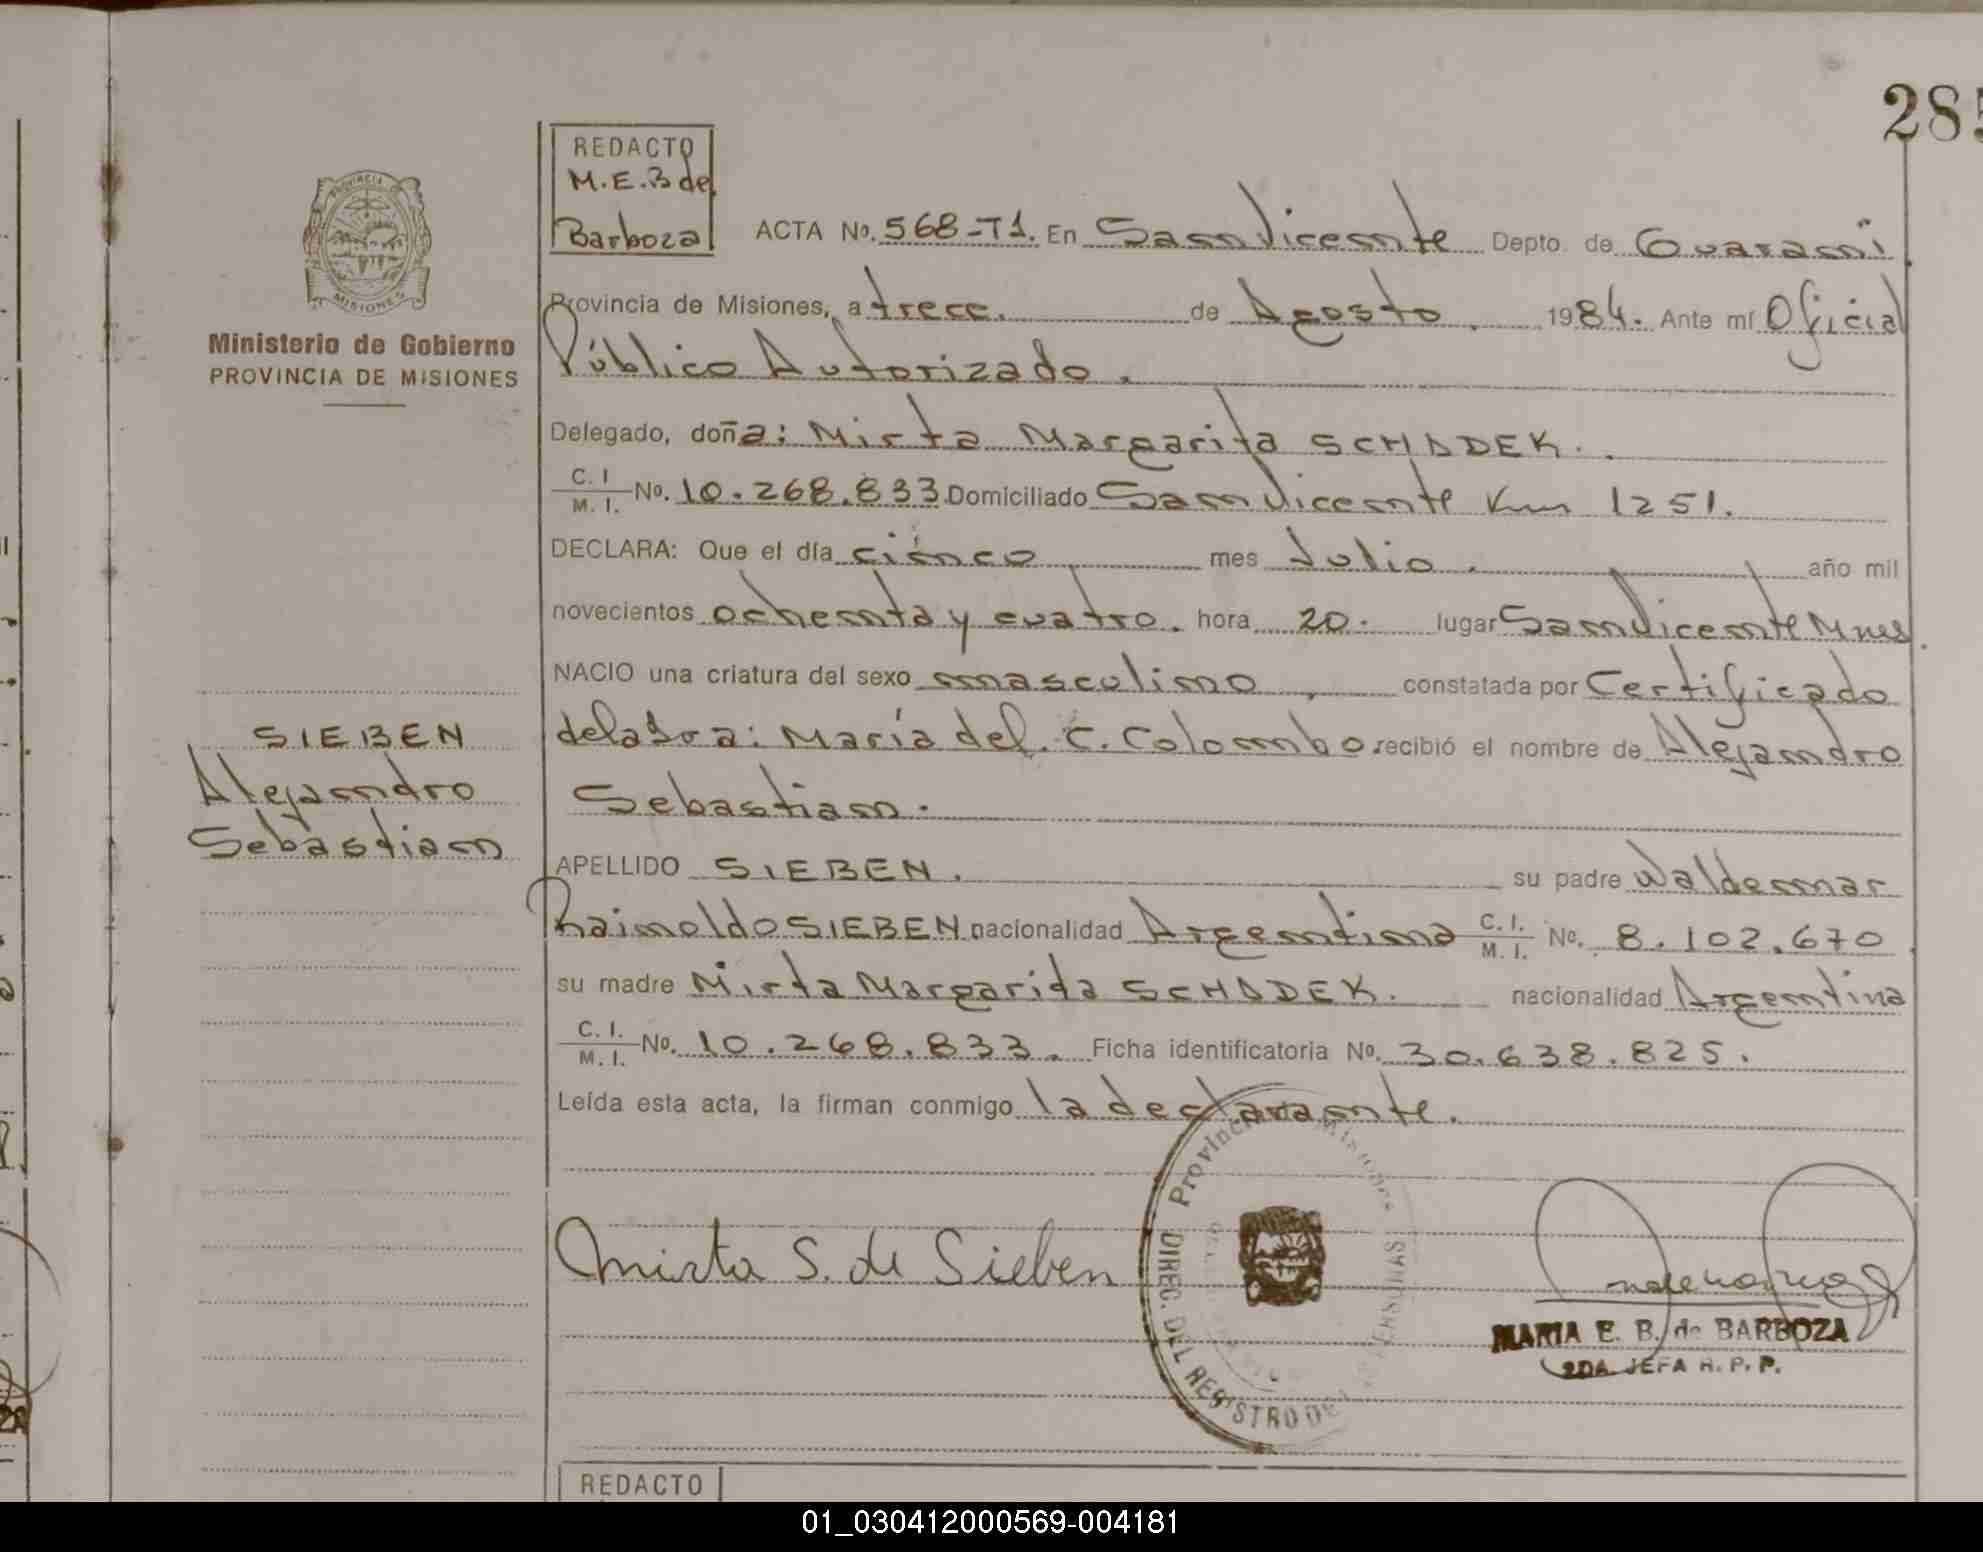 285
REDACTO
M.E.B de
Barboza
ACTA No. 568-T1. En San Vicente Depto. de Guaraní
Provincia de Misiones, a trece. de Agosto. 1984. Ante mí Oficial
Público Autorizado.
Delegado, doña: Mirta Margarita SCHADEK.
C. I / M. I. No. 10.268.833 Domiciliado San Vicente Km 1251.
DECLARA: Que el día cinco mes Julio. año mil
novecientos ochenta y cuatro. hora 20. lugar San Vicente Mnes
NACIO una criatura del sexo masculino, constatada por Certificado
de la Dra: María del. C. Colombo. recibió el nombre de Alejandro
Sebastian.
APELLIDO SIEBEN. su padre Waldemar
Rainoldo SIEBEN nacionalidad Argentina C. I. / M. I. No. 8.102.670
su madre Mirta Margarita SCHADEK. nacionalidad Argentina
C. I. / M. I. No. 10.268.833. Ficha identificatoria No. 30.638.825.
Leída esta acta, la firman conmigo la declarante.
Mirta S. de Sieben
MARIA E. B. de BARBOZA
2DA. JEFA R. P. P.
Provincia Misiones
DIREC. DEL REGISTRO DE PERSONAS
PROVINCIA DE
MISIONES
Ministerio de Gobierno
PROVINCIA DE MISIONES
SIEBEN
Alejandro
Sebastian
REDACTO
01_030412000569-004181